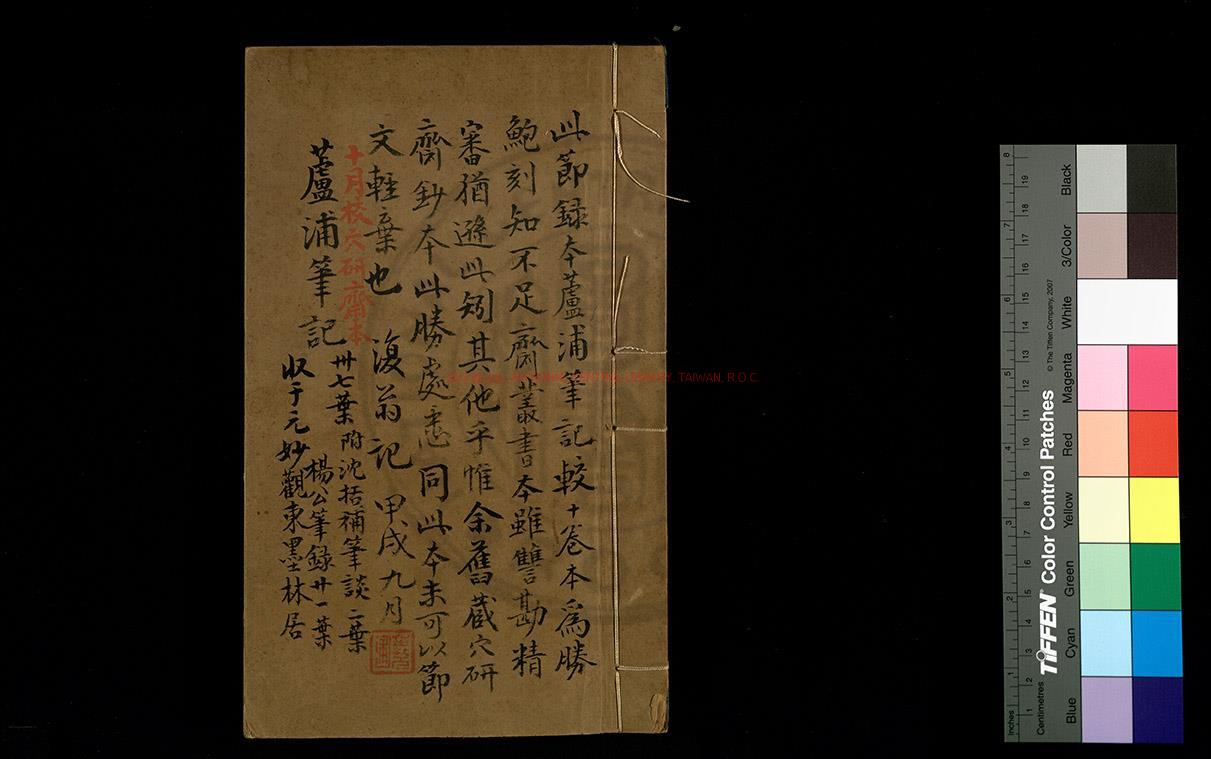 此節録本蘆浦筆記較十卷本爲勝
鮑刻知不足齋叢書本雖讐勘精
審猶遜此矧其他乎惟余舊藏穴研
齋鈔本此勝處悉同此本未可以節
文輕棄也 復翁記 甲戌九月
十月校穴研齋本
蘆浦筆記 卅七葉附沈括補筆談二葉
楊公筆録廿一葉
收于元妙觀東墨林居
CENTRAL LIBRARY, TAIWAN, R.O.C.
Inches
Centimetres
TIFFEN® Color Control Patches
© The Tiffen Company, 2007
Blue
Cyan
Green
Yellow
Red
Magenta
White
3/Color
Black